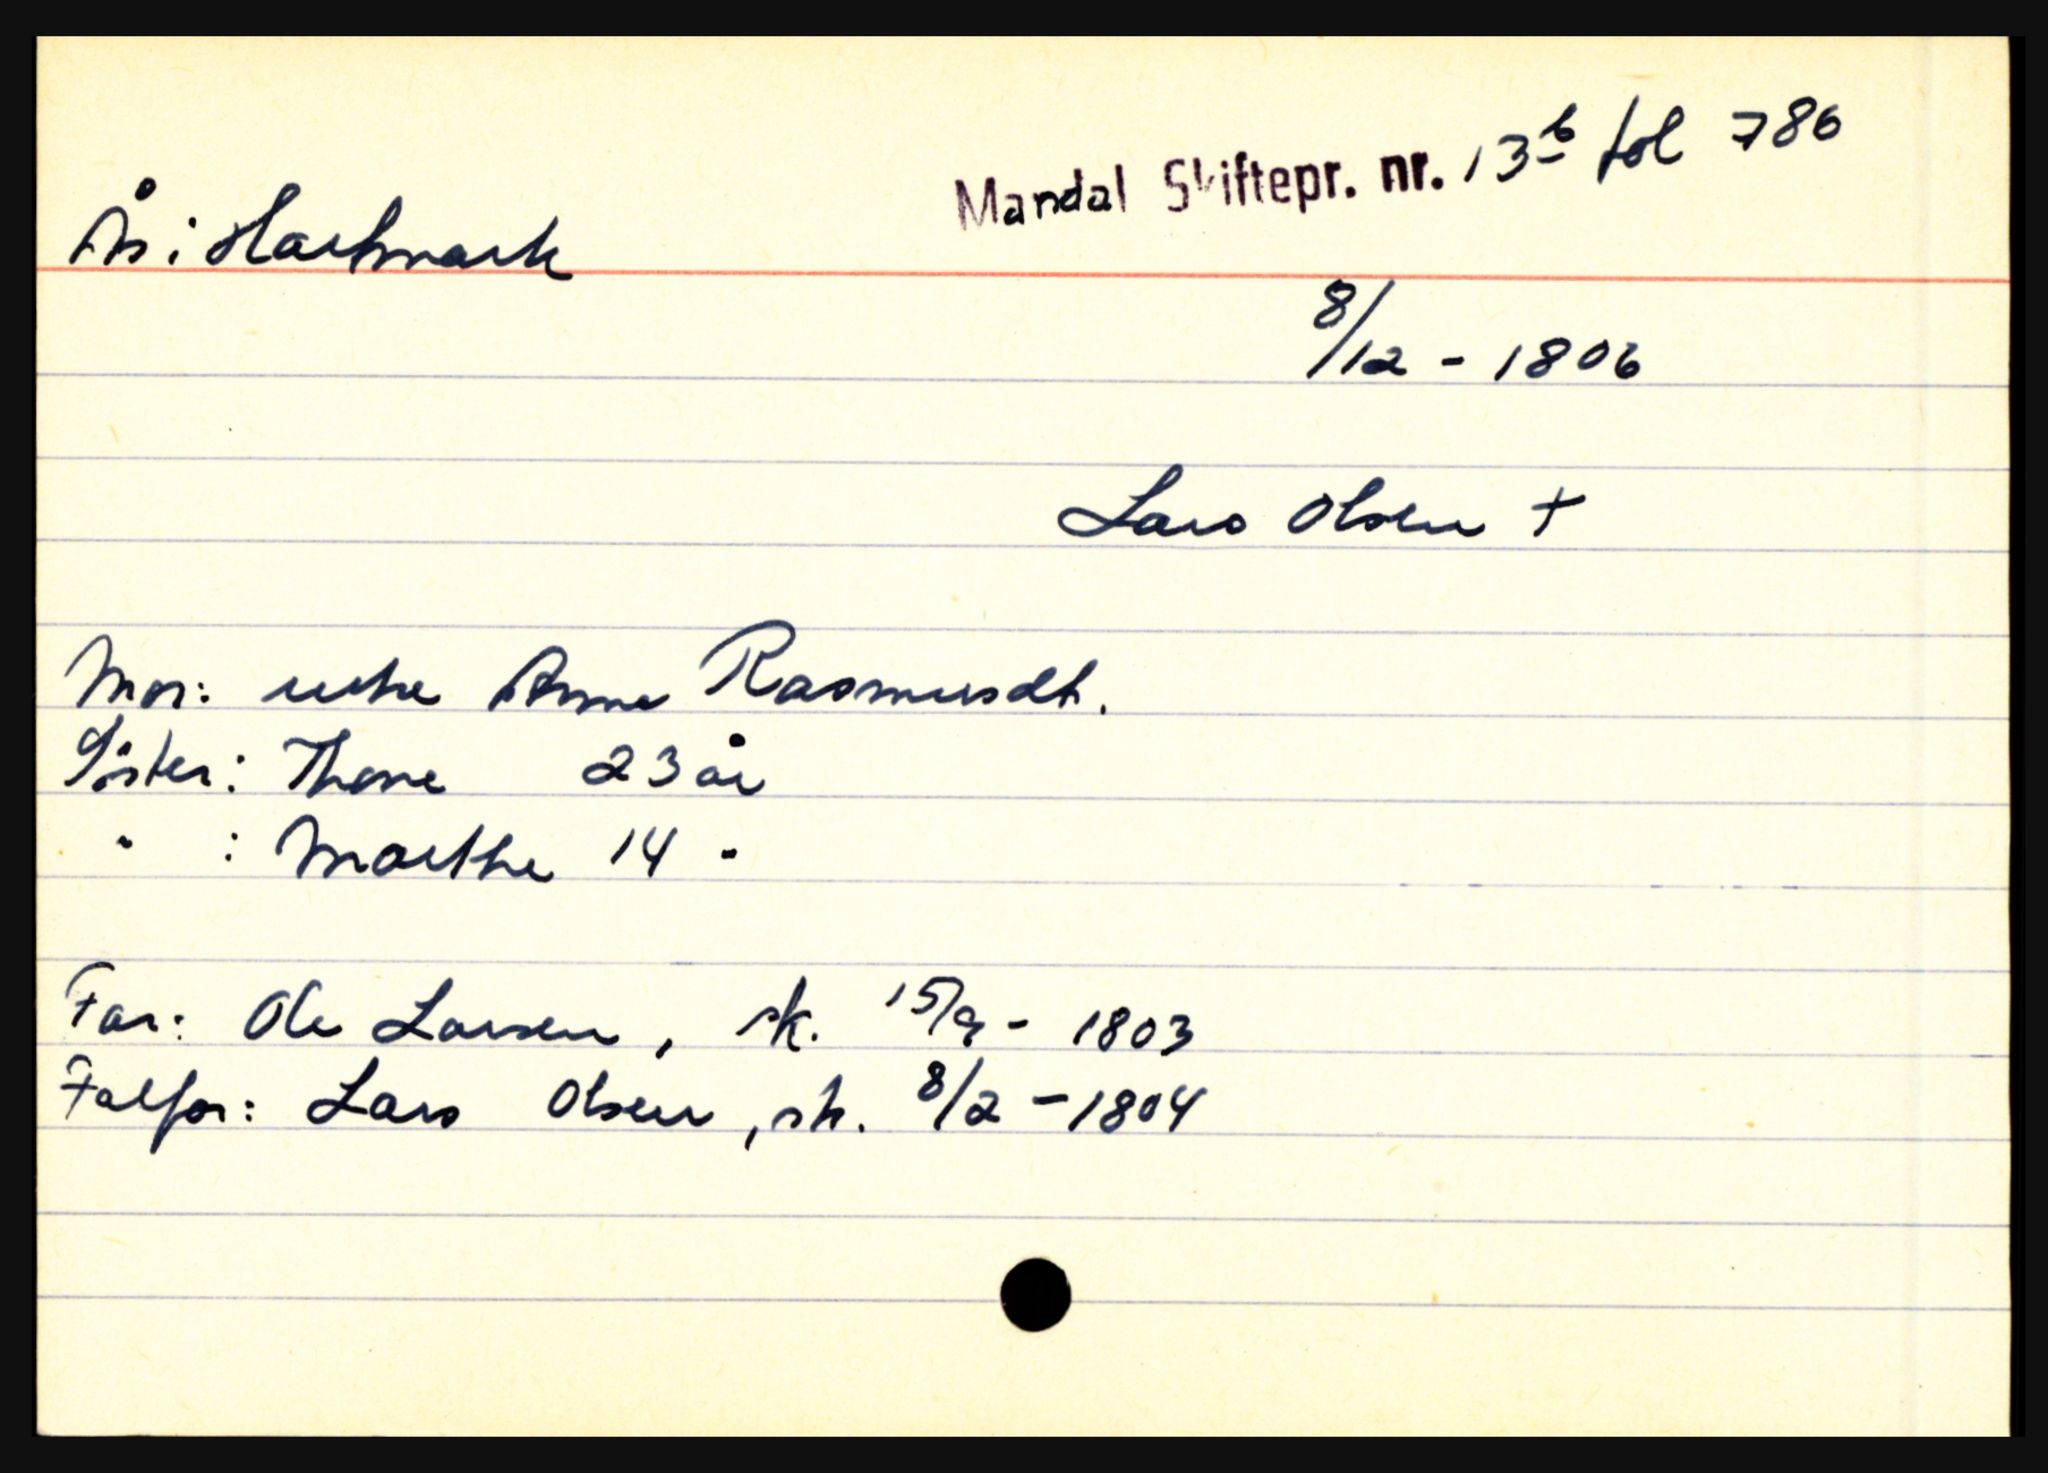 Mandal Skiftepr. nr. 13b fol 786
Ås i Hartmark
8/12 - 1806
Lars Olsen +
Mor: enke Anne Rasmusdt.
Søster: Thore 23 år
" : Marthe 14 "
Far: Ole Larsen, sk. 15/9 - 1803
Falfar: Lars Olsen, sk. 8/2 - 1804